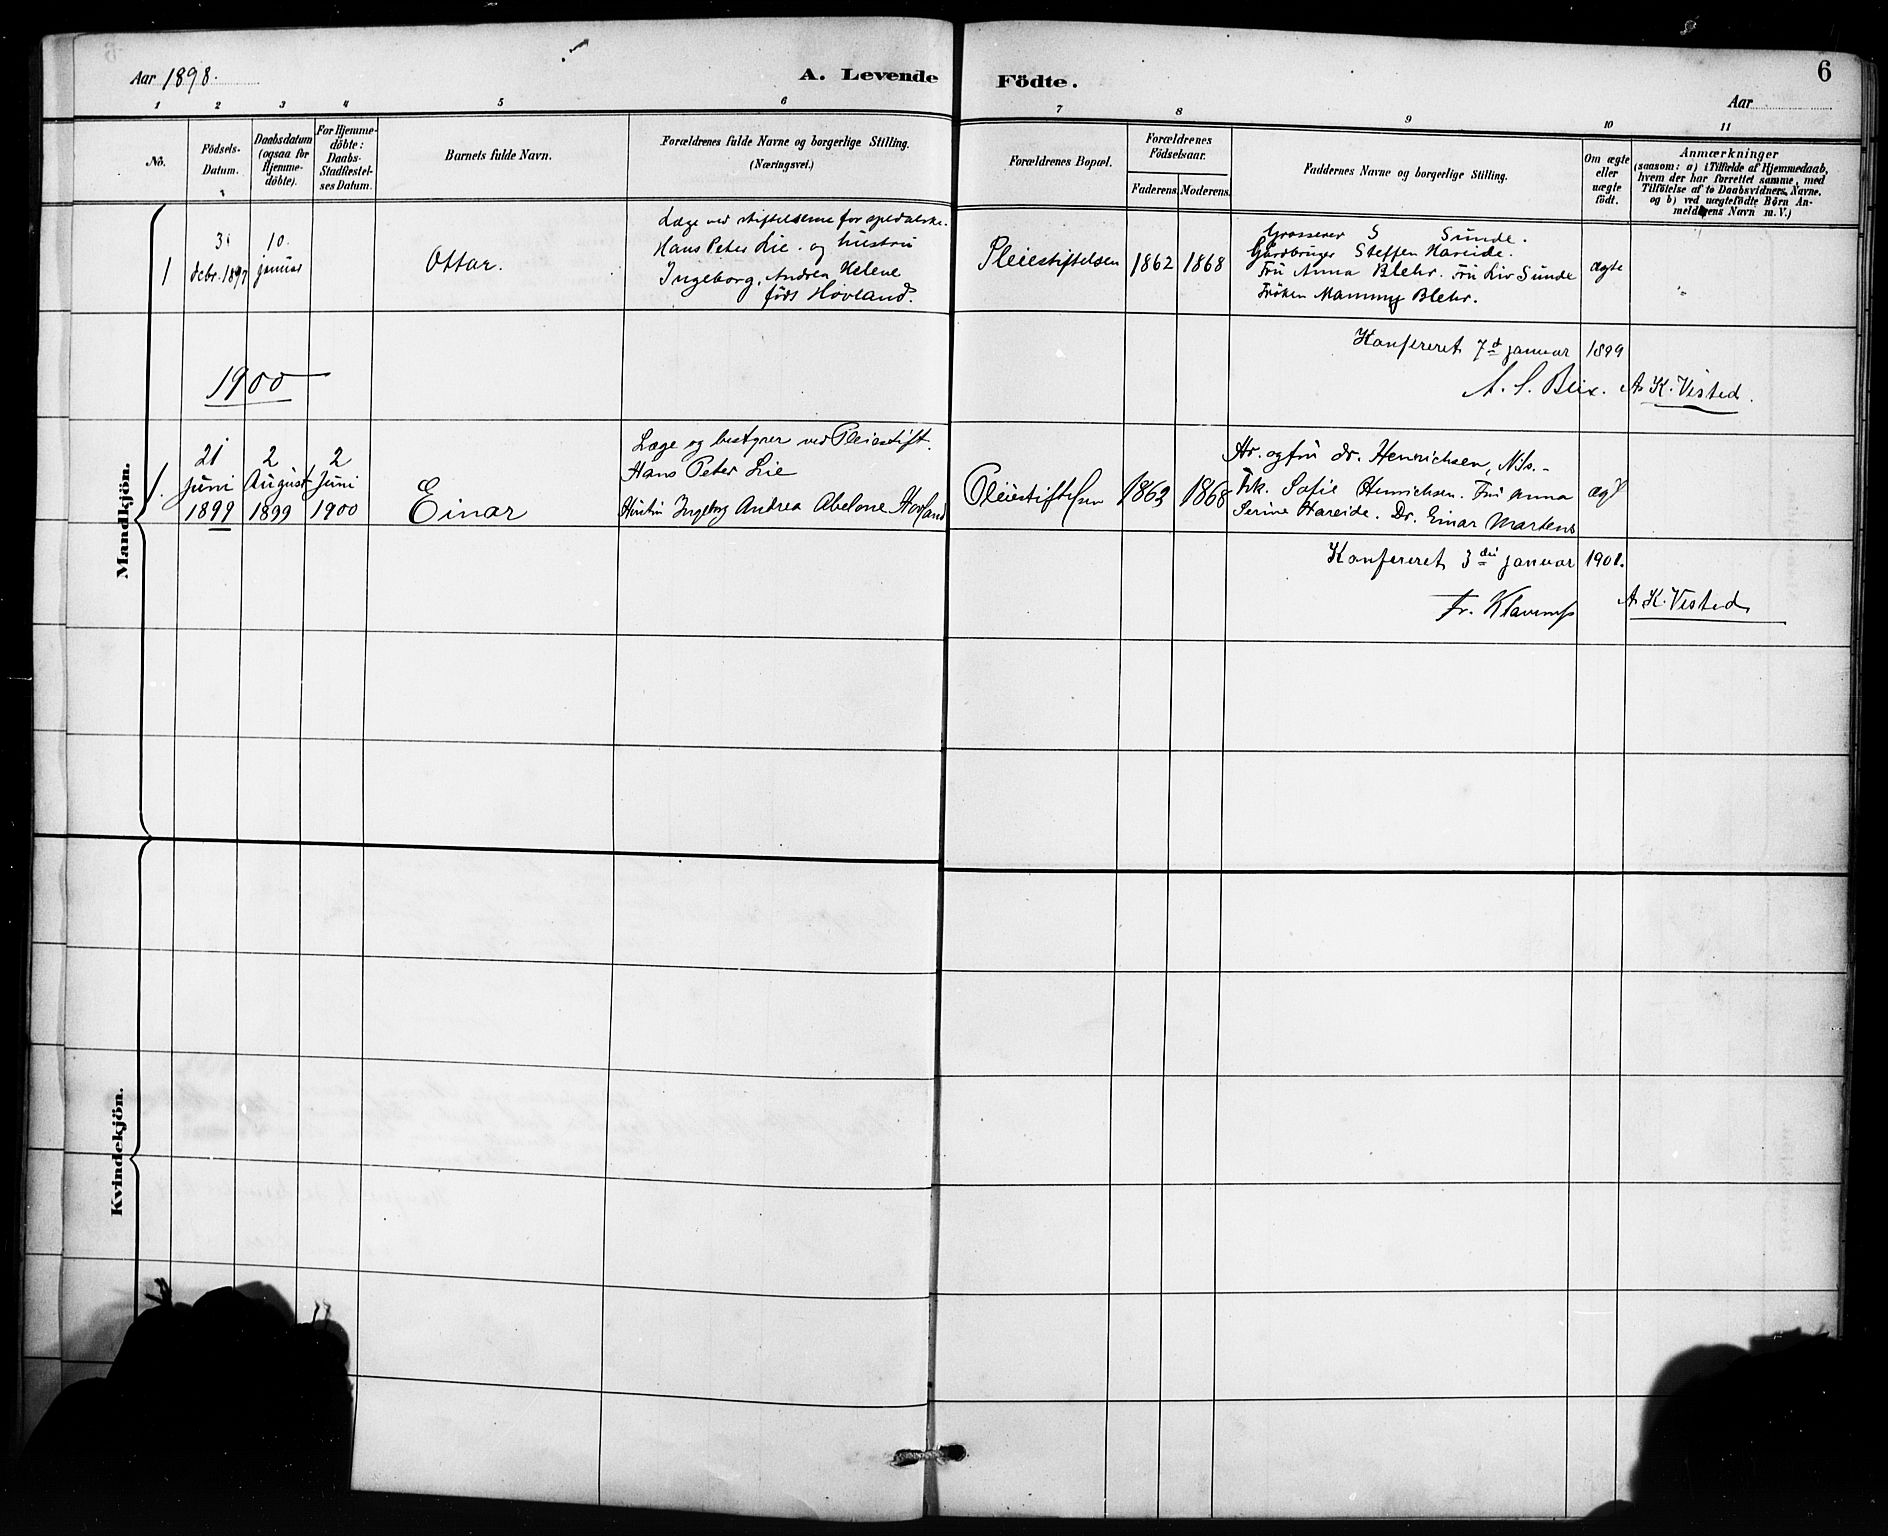 Aar 1898.
A. Levende Födte.
6
Aar
1 2 3 4 5 6 7 8 9 10 11
No.
Födsels-Datum.
Daabsdatum (ogsaa for Hjemme-döbte).
For Hjemme-döbte: Daabs-Stadfæstel-ses Datum.
Barnets fulde Navn.
Forældrenes fulde Navne og borgerlige Stilling. (Næringsvei.)
Forældrenes Bopæl.
Forældrenes Födselsaar.
Faderens. Moderens.
Faddernes Navne og borgerlige Stilling.
Om ægte eller uægte födt.
Anmærkninger
(saasom: a) i Tilfælde af Hjemmedaab,
hvem der har forrettet samme, med
Tilföielse af to Daabsvidners Navne,
og b) ved uægtefödte Börn An-
melderens Navn m. V.)
Mandkjön.
1
31 debr. 1897
10. januar
Ottar.
Læge ved stiftelserne for spedalske.
Hans Peter Lie. og hustru
Ingeborg, Andrea Helene
föds Hovland.
Pleiestiftelsen
1862
1868
Grosserer S Sunde.
Gårdbruger Steffen Hareide.
Fru Anna Blehr. Fru Liv Sunde
Fröken Mammy Blehr.
ægte
"
Konfereret 7d januar 1899
A. S. Blix. A. K. Visted.
1900
1.
21 juni 1899
2 August 1899
2 Juni 1900
Einar
Læge og bestyrer ved Pleiestift.
Hans Peter Lie
Hustru Ingeborg Andrea Abelone Hovland
Pleiestiftelsen
1862
1868
Hr. og fru dr. Henrichsen, Nils.-
Frk. Sofie Henrichsen. Fru Anna
Serine Hareide. Dr. Einar Martens
ægt
Konfereret 3die januar 1901.
Fr. A. K. Visted
Kvindekjön.